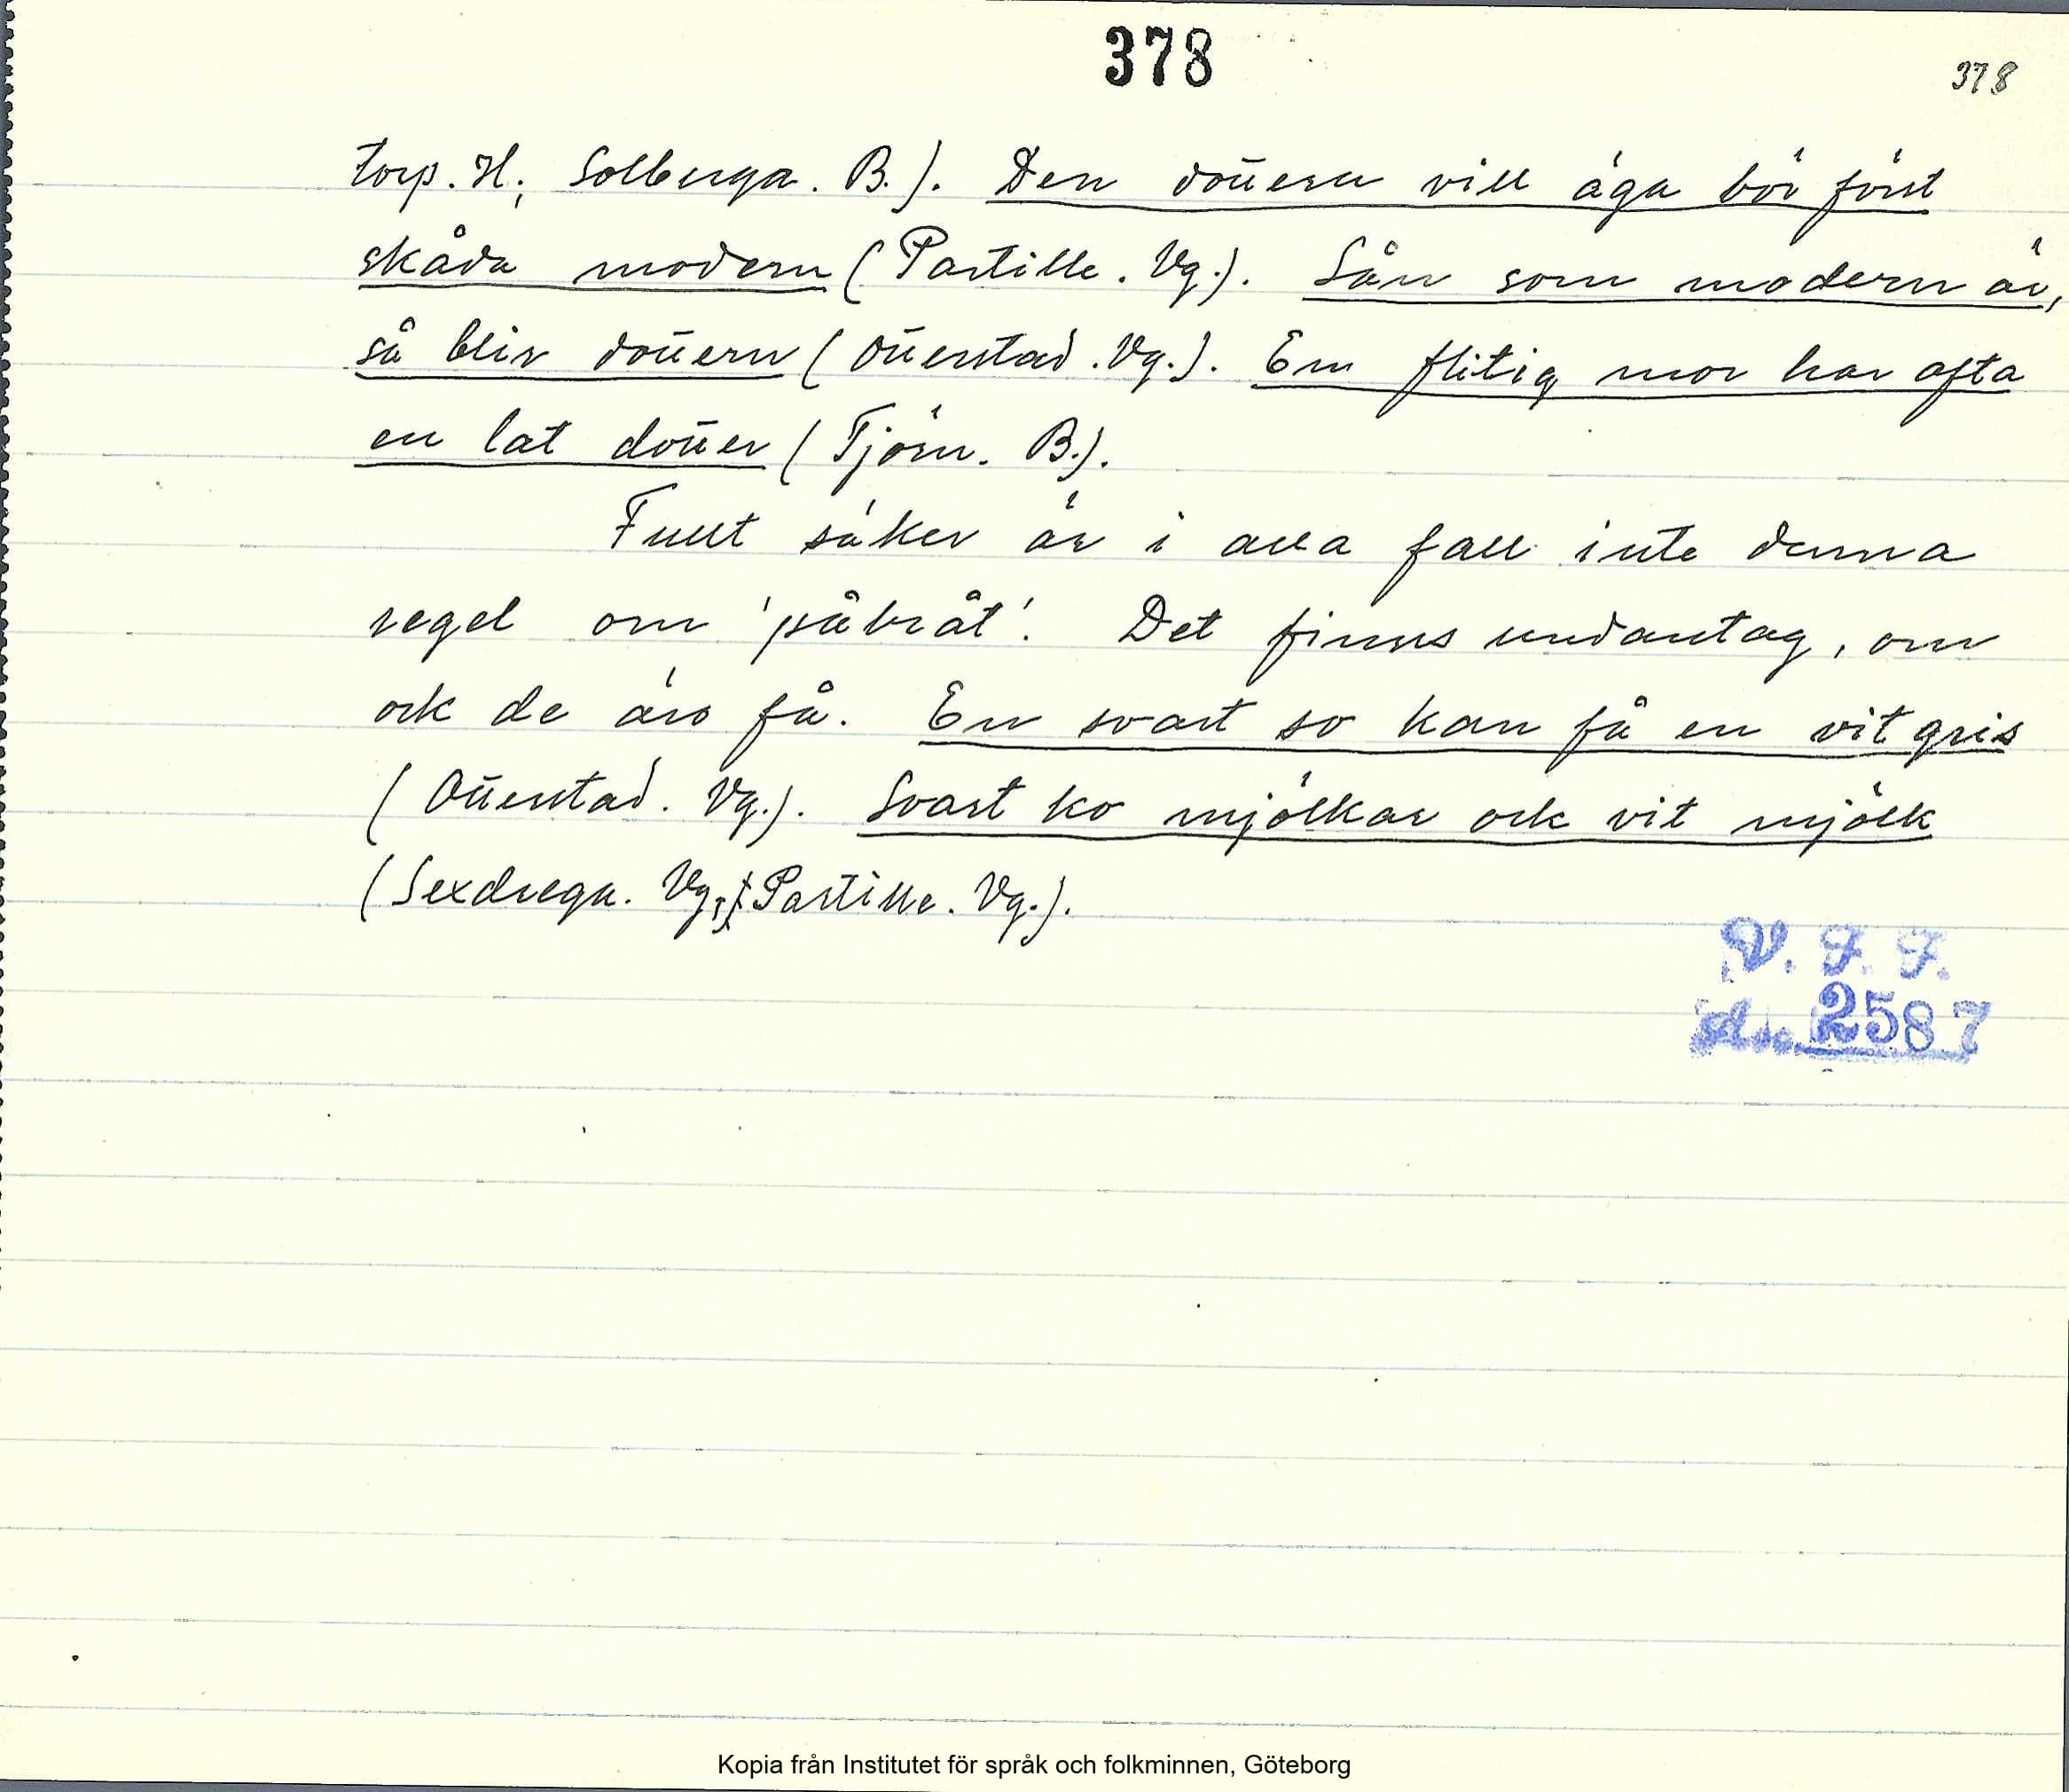 378
378
torp. H; Solberga. B.). Den dottern vill äga bör först
skåda modern (Partille. Vg.). Sån som modern är,
så blir dottern (Otterstad. Vg.). En flitig mor har ofta
en lat dotter (Tjörn. B.).
Fullt säker är i alla fall inte denna
regel om 'påbråt'. Det finns undantag, om
ock de äro få. En svart so kan få en vit gris
(Otterstad. Vg.). Svart ko mjölkar ock vit mjölk
(Sexdrega. Vg.; Partille. Vg.).
V. F. F.
2587
Kopia från Institutet för språk och folkminnen, Göteborg